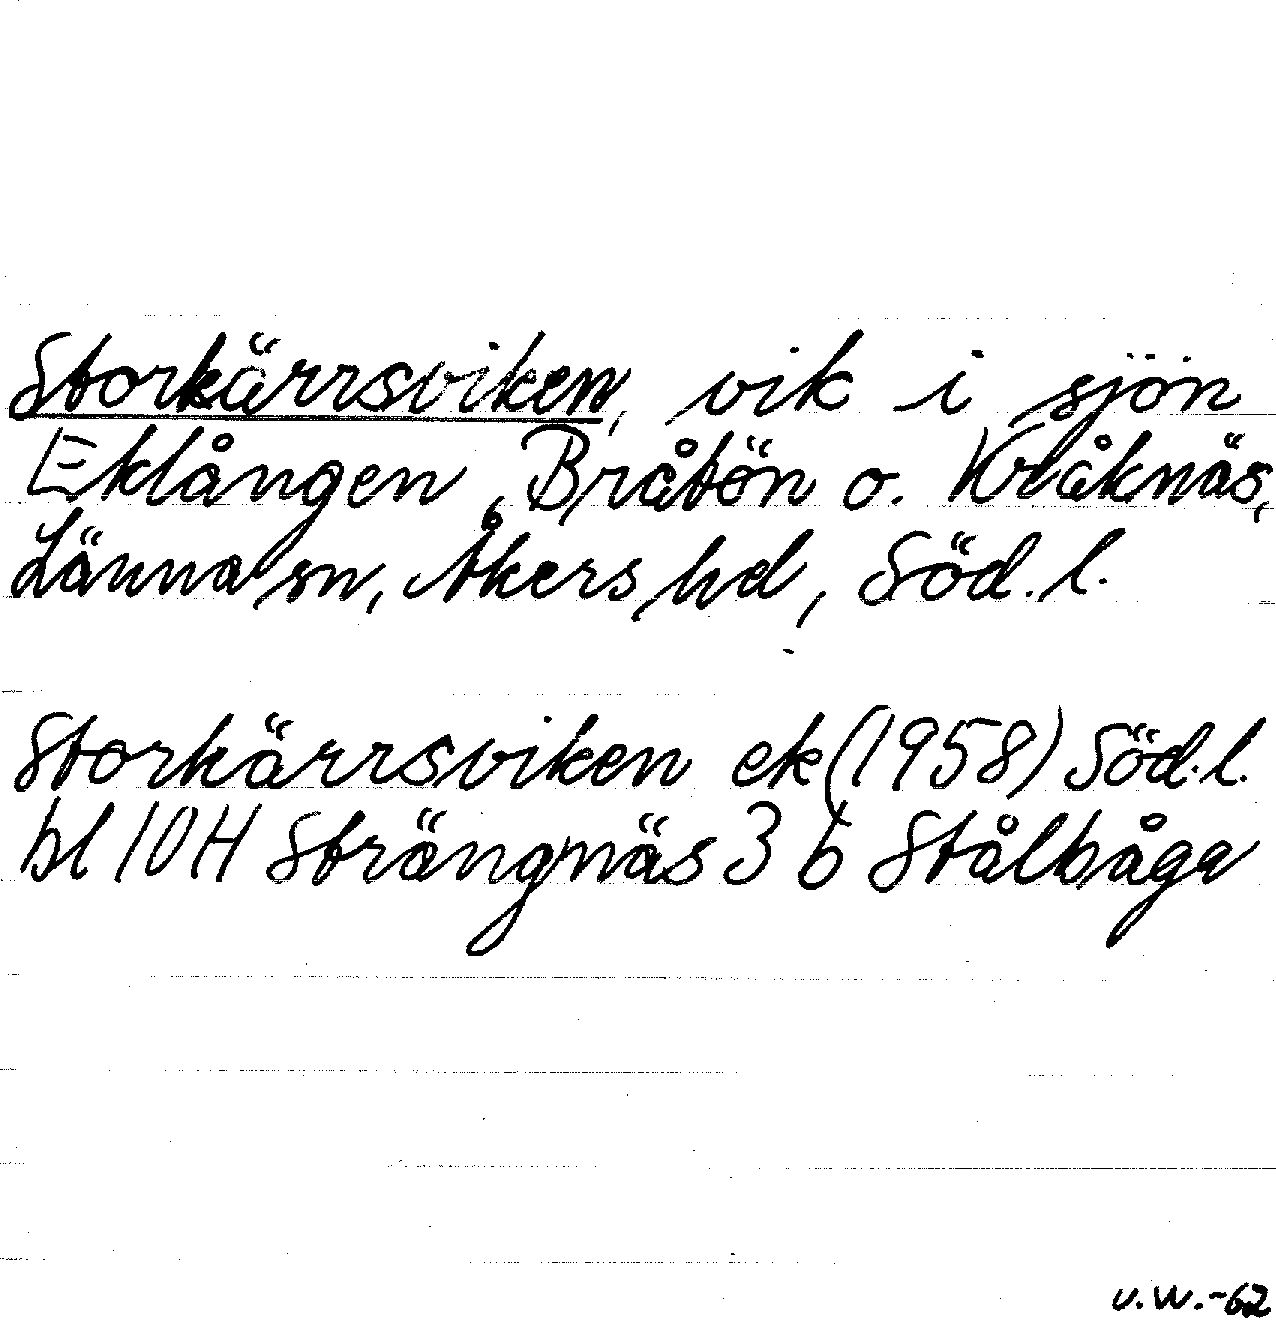 Storkärrsviken, vik i sjön
Eklången, Bråtön o. Kråknäs,
Länna sn, Åkers hd, Söd. l.
Storkärrsviken ek (1958) Söd. l.
bl 10H Strängnäs 3 b Stålbåga
v.W.-62